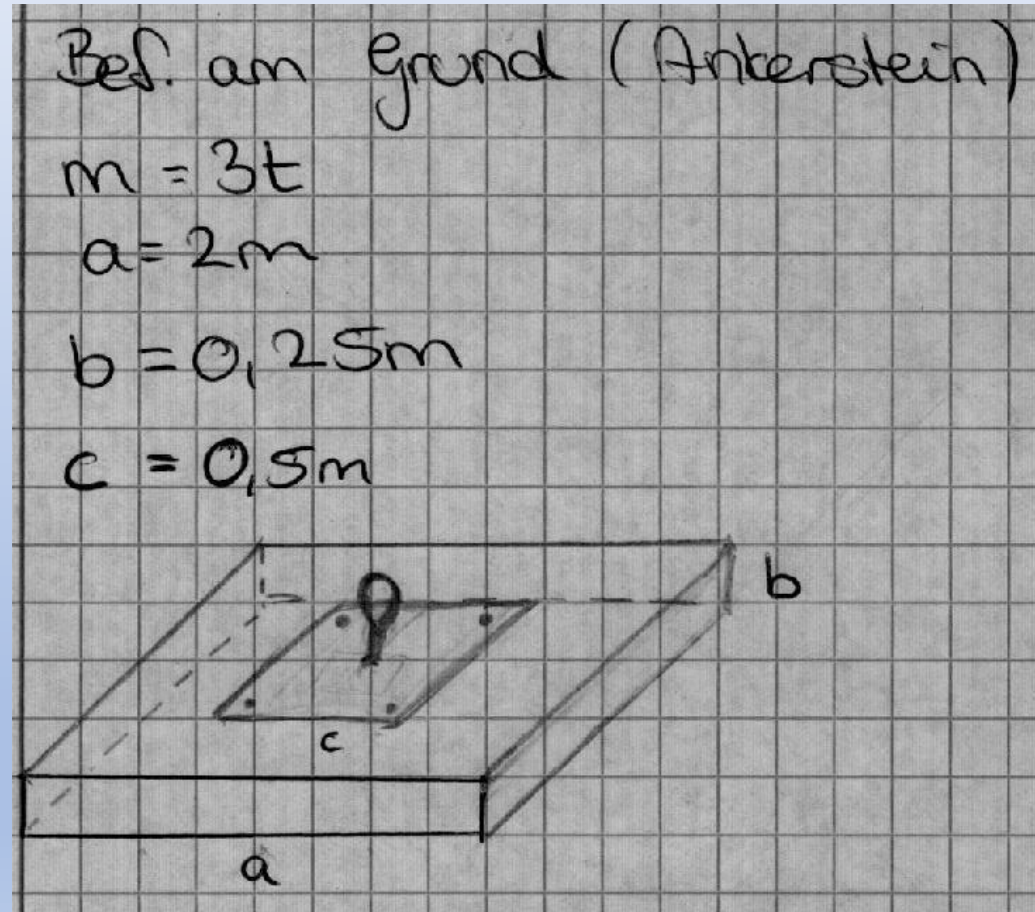 Bef. am Grund (Ankerstein)
m = 3t
a = 2m
b = 0,25m
c = 0,5m
b
c
a